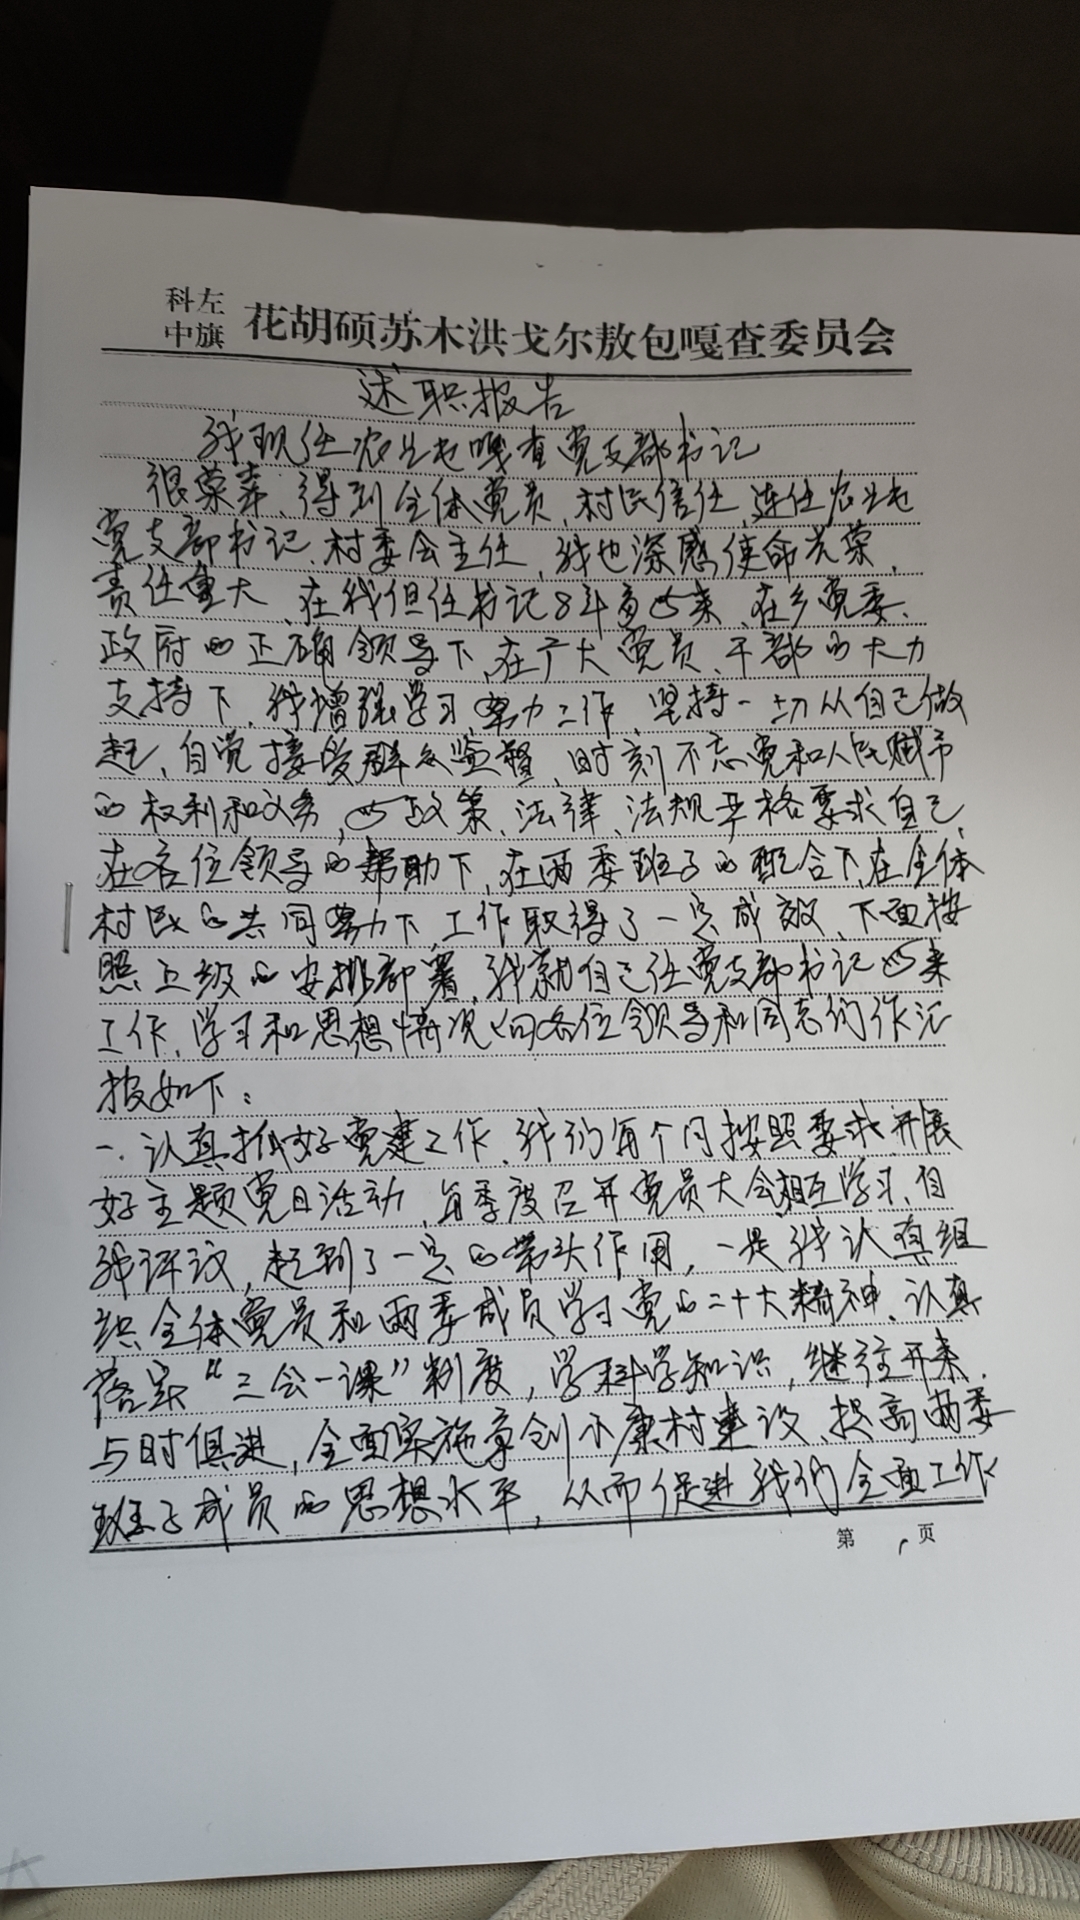 科左
中旗 花胡硕苏木洪戈尔敖包嘎查委员会
述职报告
我现任农生屯嘎查党支部书记
很荣幸、得到全体党员、村民信任、连任农生屯
党支部书记、村委会主任,我也深感使命光荣、
责任重大、在我但任书记8年多以来、在乡党委、
政府的正确领导下、在广大党员、干部的大力
支持下,我增强学习、努力工作、坚持一切从自己做
起、自觉接受群众监督,时刻不忘党和人民赋予
的权利和义务,以政策、法律、法规严格要求自己、
在各位领导的帮助下、在两委班子的配合下、在全体
村民的共同努力下、工作取得了一定成效、下面按
照上级的安排部署、我就自己任党支部书记以来
工作、学习和思想情况向各位领导和同志们作汇
报如下:
一、认真抓好党建工作、我们每个月按照要求开展
好主题党日活动,每季度召开党员大会相互学习、自
我评议,起到了一定的带头作用,一是我认真组
织全体党员和两委成员学习党的二十大精神、认真
落实“三会一课”制度,学科学知识,继往开来、
与时俱进,全面实施 创小康村建设、提高两委
班子成员的思想水平,从而促进我们全面工作
第 页